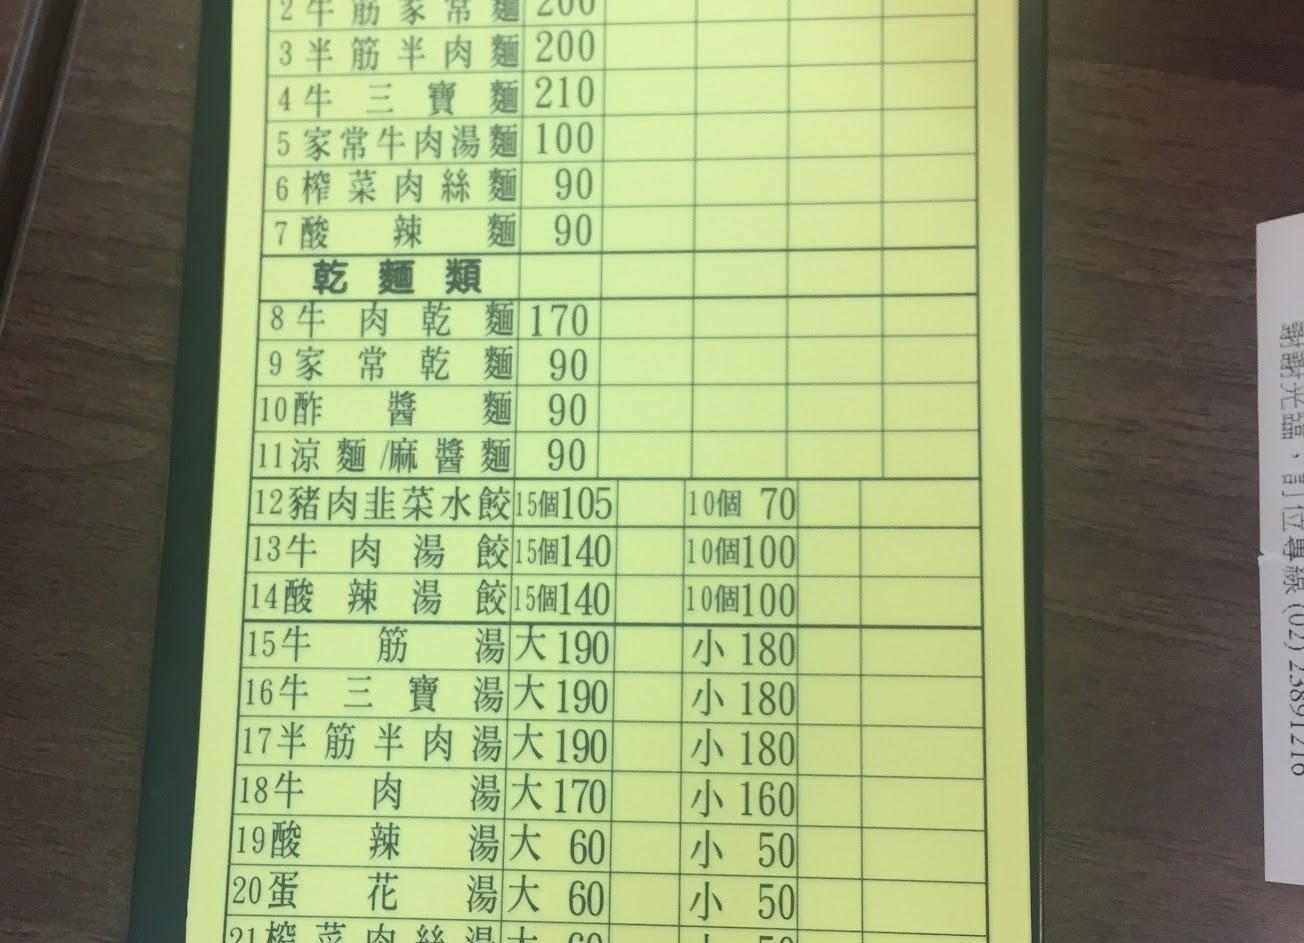 2 牛筋家常麵 200
3 半筋半肉麵 200
4 牛三寶麵 210
5 家常牛肉湯麵 100
6 榨菜肉絲麵 90
7 酸辣麵 90
乾麵類
8 牛肉乾麵 170
9 家常乾麵 90
10 酢醬麵 90
11 涼麵/麻醬麵 90
12 豬肉韭菜水餃 15個105 10個 70
13 牛肉湯餃 15個140 10個100
14 酸辣湯餃 15個140 10個100
15 牛筋湯 大 190 小 180
16 牛三寶湯 大 190 小 180
17 半筋半肉湯 大 190 小 180
18 牛肉湯 大 170 小 160
19 酸辣湯 大 60 小 50
20 蛋花湯 大 60 小 50
21 榨菜肉絲湯 大 60 小 50
謝謝光臨，訂位專線 (02) 23891216